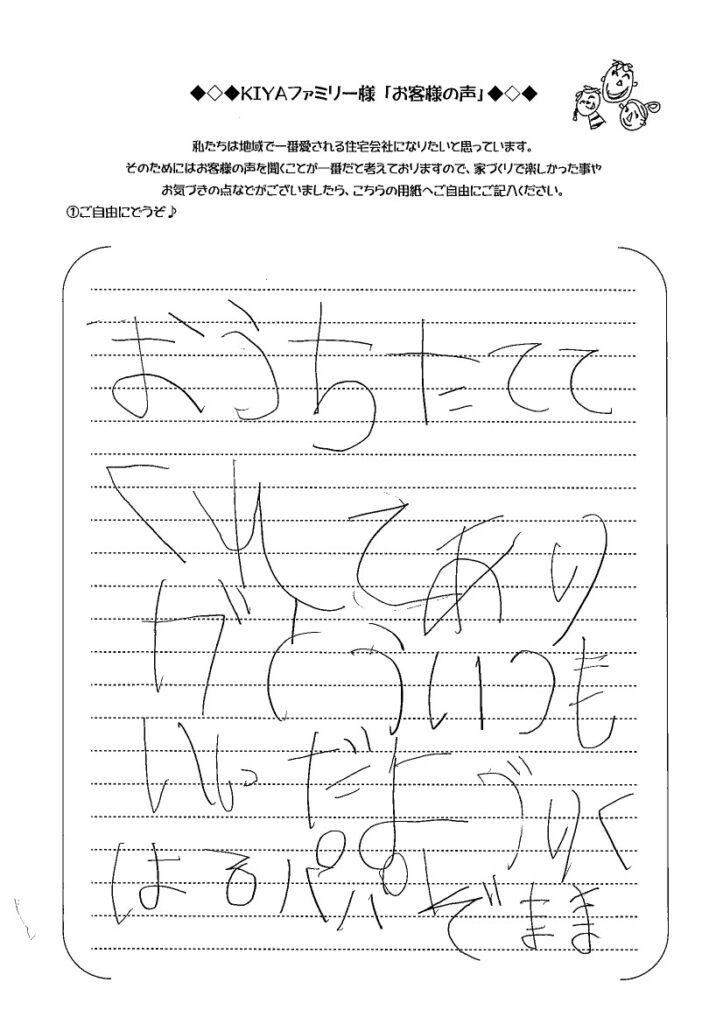 ◆◇◆KIYAファミリー様「お客様の声」◆◇◆
私たちは地域で一番愛される住宅会社になりたいと思っています。
そのためにはお客様の声を聞くことが一番だと考えておりますので、家づくりで楽しかった事や
お気づきの点などがございましたら、こちらの用紙へご自由にご記入ください。
①ご自由にどうぞ♪
おうちたてて
くれてあり
がとういつも
だよ
りく
はるパパ
まま